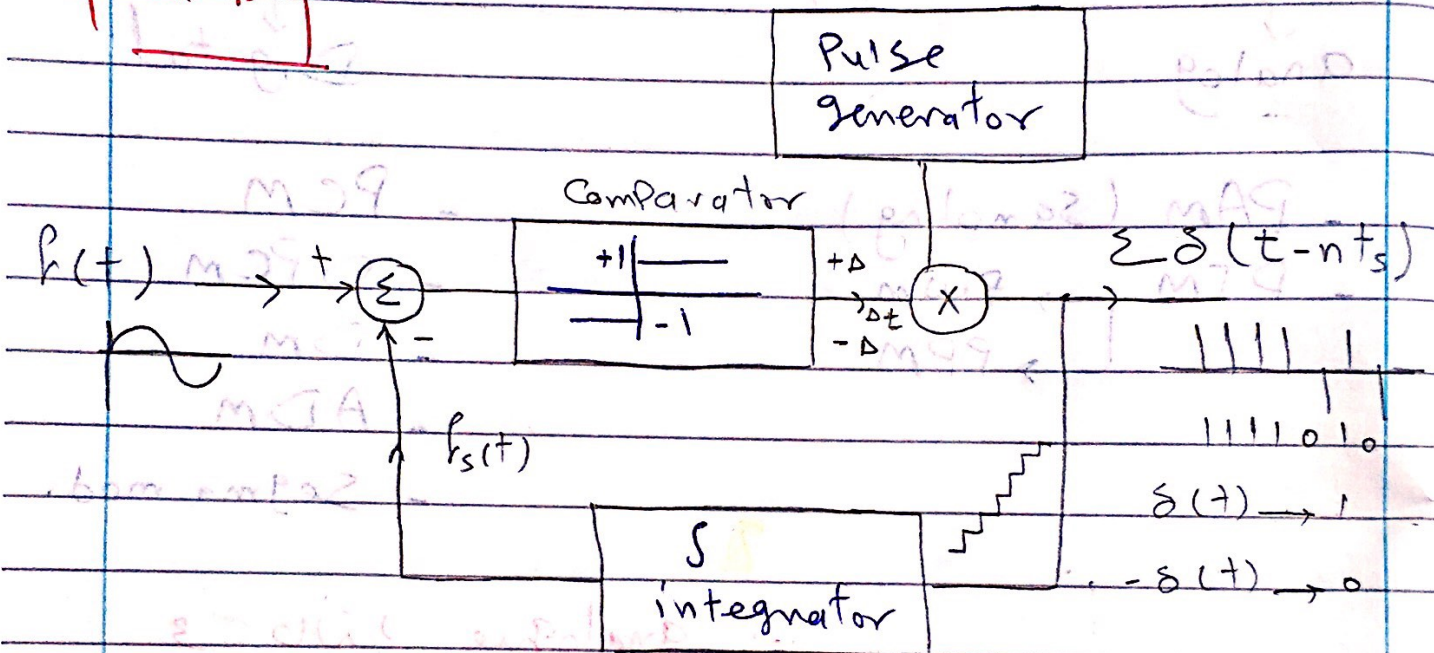 Pulse
generator
Comparator
f(t)
+
Σ
-
+1
-1
+Δ
Δt
-Δ
X
Σ δ(t-nts)
1111010
fs(t)
δ(t) → 1
-δ(t) → 0
∫
integrator